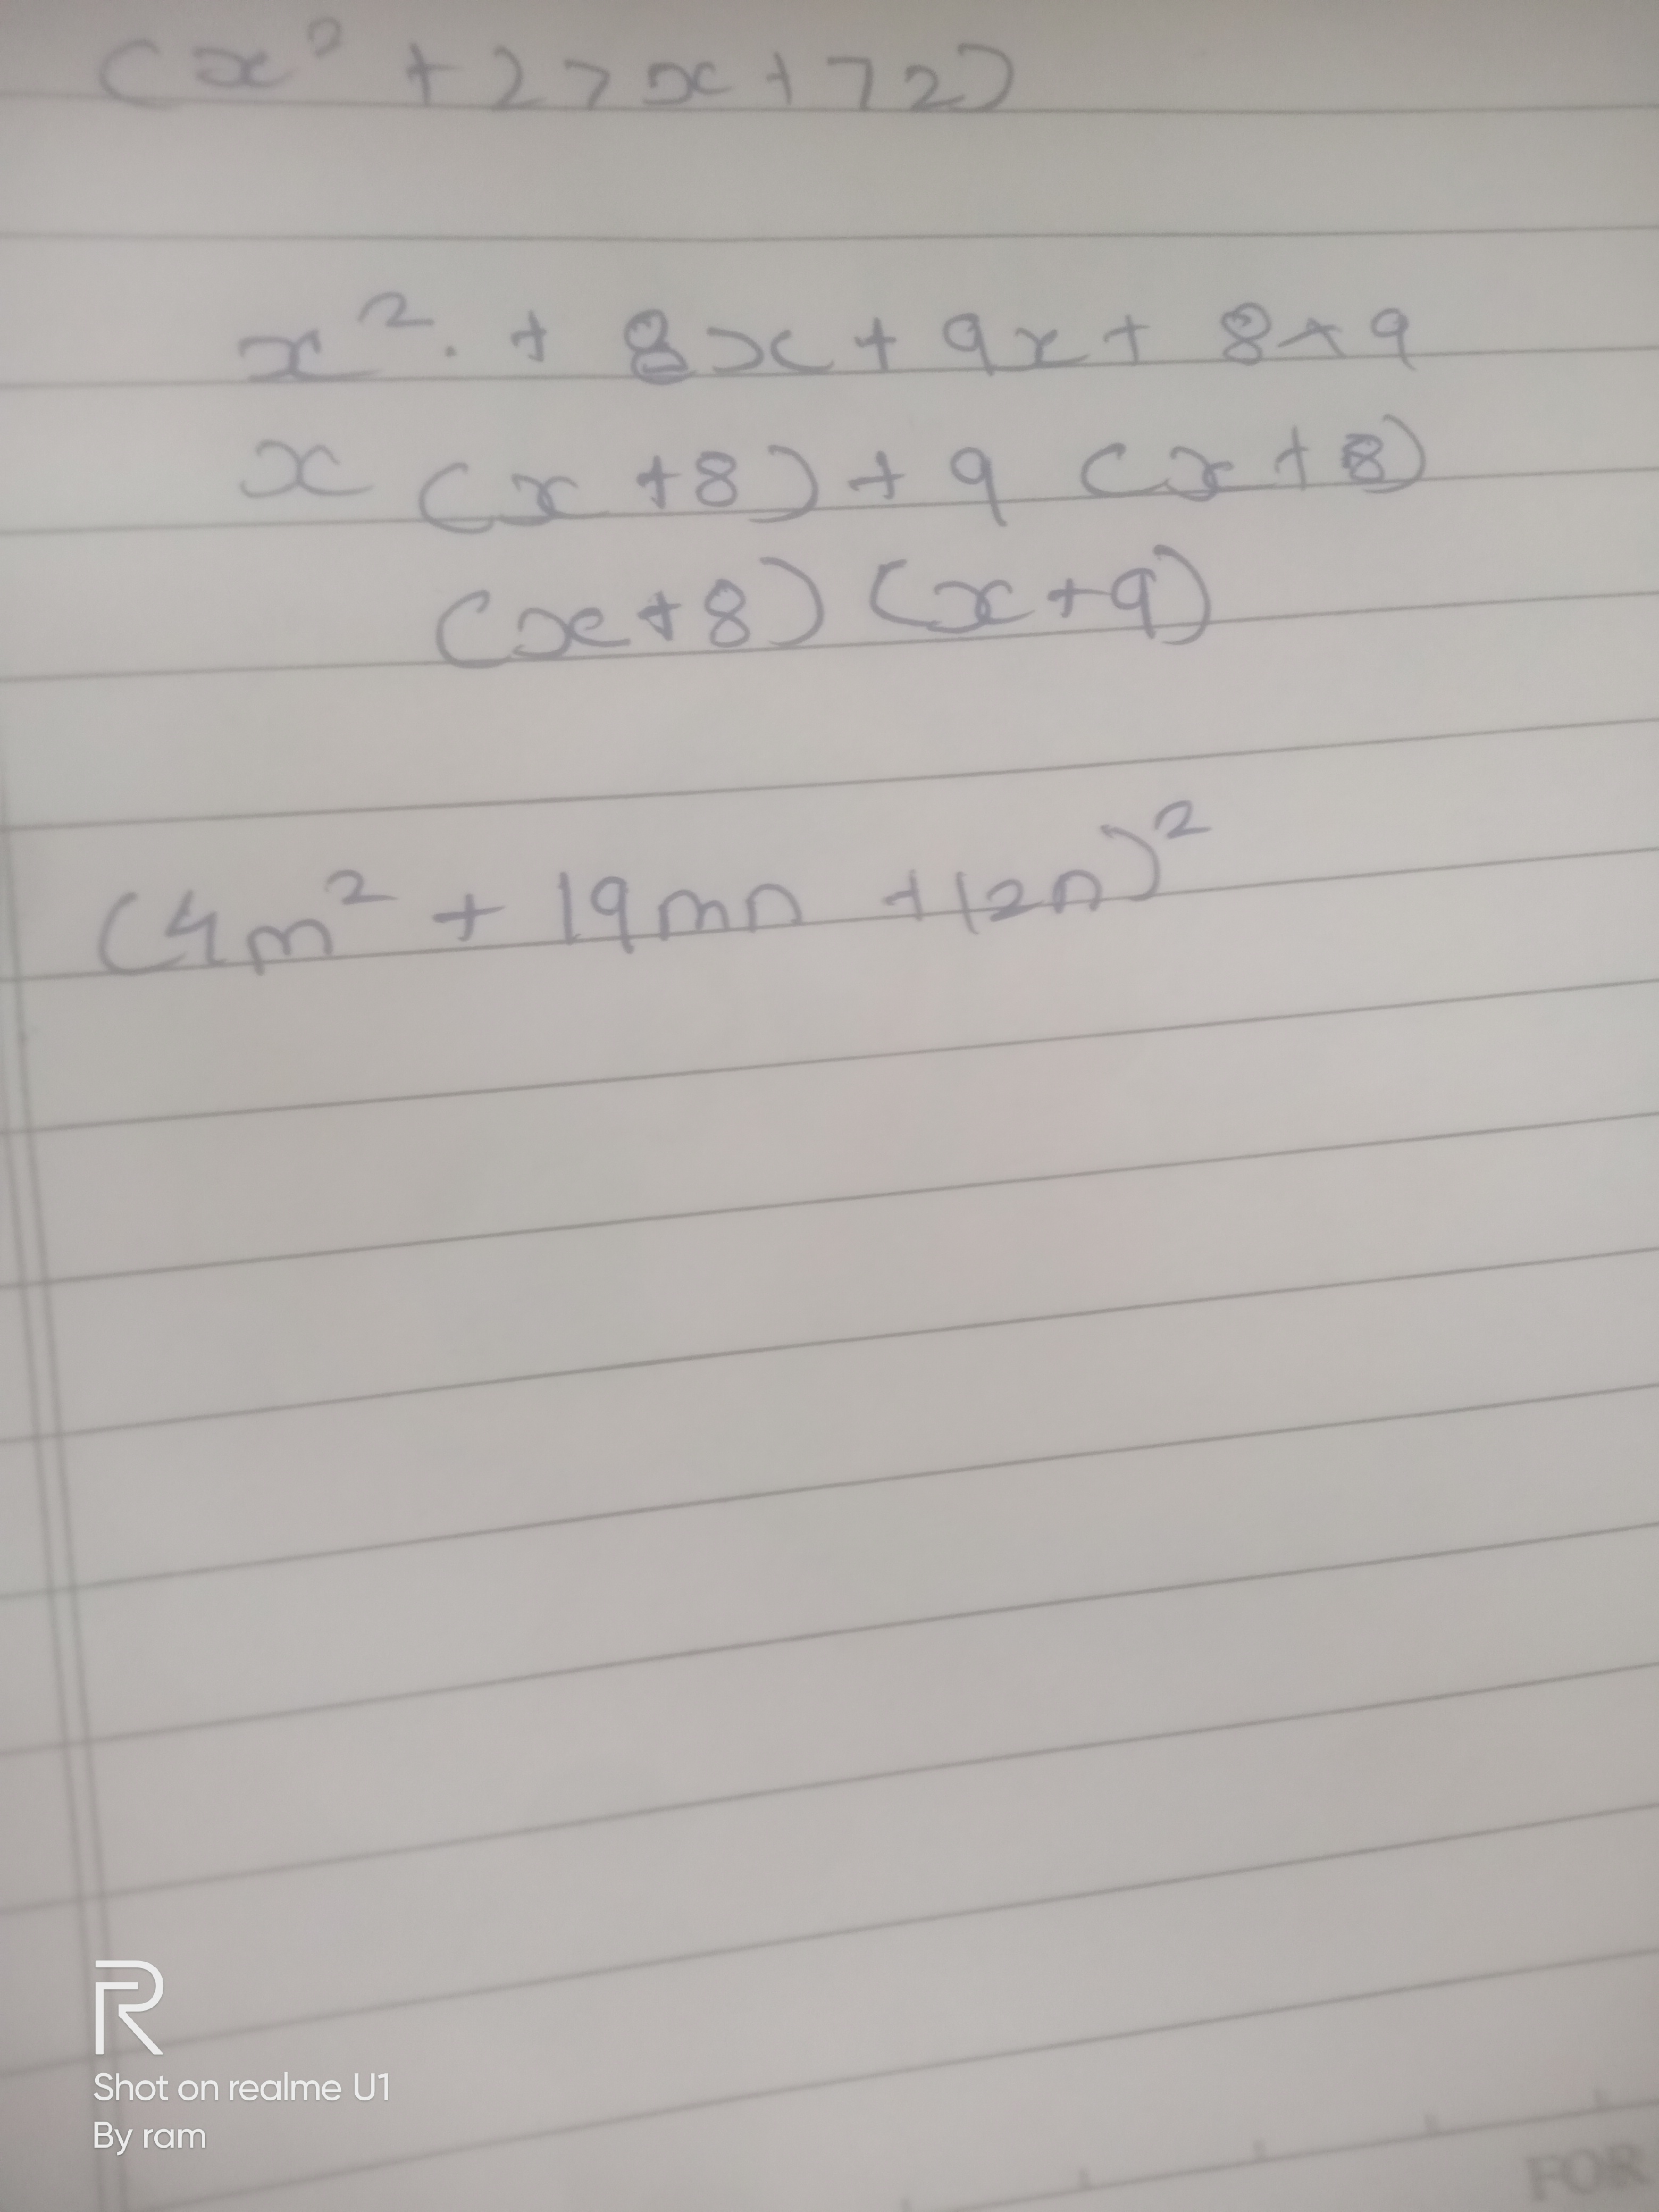 (x² + 27x + 72)
x². + 8x + 9x + 8×9
x (x +8) + 9 (x+8)
(x+8) (x+9)
(4m² + 19mn +12n)²
R
Shot on realme U1
By ram
FOR